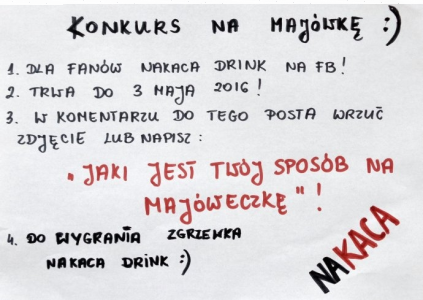 KONKURS NA MAJÓWKĘ :)
1. DLA FANÓW NAKACA DRINK NA FB!
2. TRWA DO 3 MAJA 2016!
3. W KOMENTARZU DO TEGO POSTA WRZUĆ
ZDJĘCIE LUB NAPISZ:
"JAKI JEST TWÓJ SPOSÓB NA
MAJÓWECZKĘ"!
4. DO WYGRANIA ZGRZEWKA
NAKACA DRINK :)
NAKACA